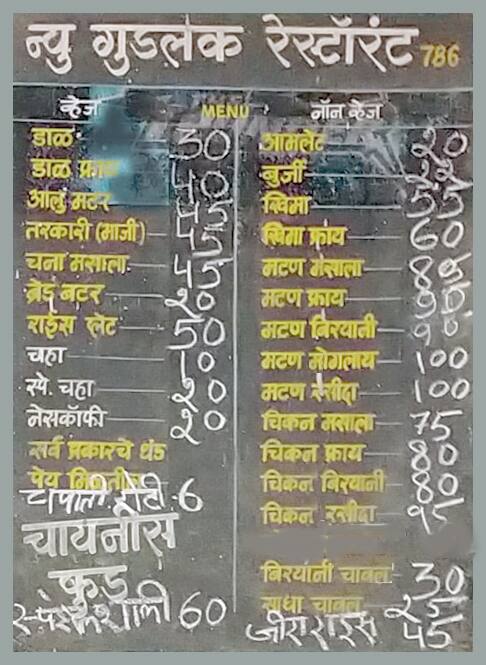 न्यु गुडलक रेस्टॉरंट 786
व्हेज MENU नॉन व्हेज
डाळ 30
डाळ फ्राय 40
आलु मटर 45
तरकारी (भाजी) 45
चना मसाला 45
ब्रेड बटर २०
राईस प्लेट 50
चहा 10
स्पे. चहा २०
नेसकॉफी २०
सर्व प्रकारचे थंड
पेय मिळतील
चपाती रोटी - 6
चायनीस
फुड
स्पेशल थाली 60
आमलेट २०
बुर्जी
खिमा 55
खिमा फ्राय 60
मटण मसाला
मटण फ्राय 90
मटण बिरयानी
मटण मोगलाय 100
मटण रसीदा 100
चिकन मसाला 75
चिकन फ्राय 80
चिकन बिरयानी 80
चिकन रसीदा
बिरयानी चावल 30
साधा चावल २5
जीरा राईस 45